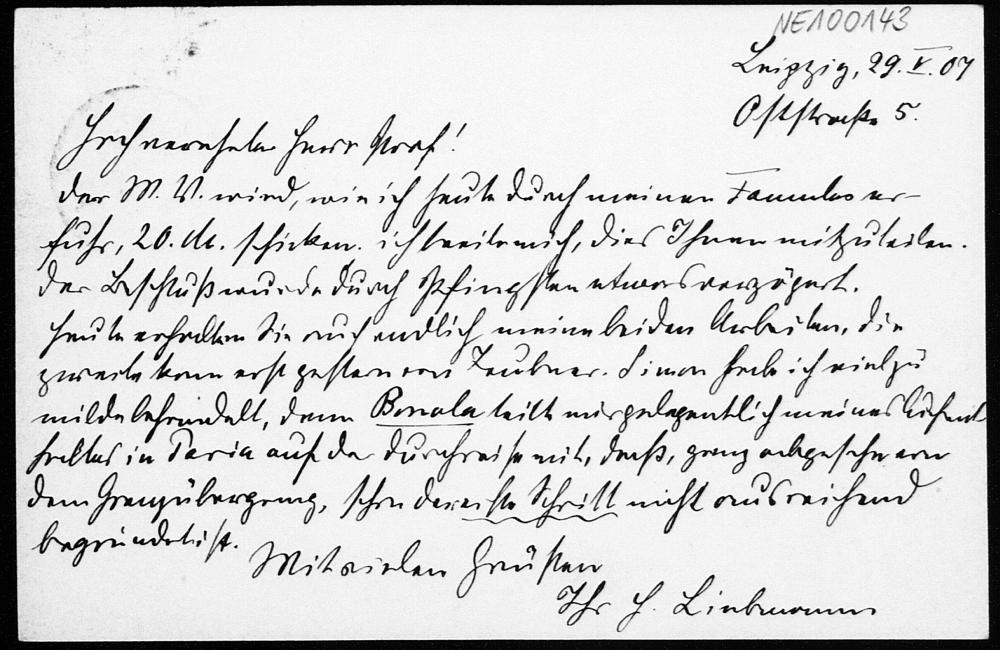 NE100143
Leipzig, 29. V. 07
Oststraße 5.
Hochverehrter Herr Prof!
Der M. V. wird, wie ich heute durch meinen Famulus er-
fuhr, 20. M. schicken. ich beeile mich, dies Ihnen mitzuteilen.
Der Beschluß wurde durch Pfingsten etwas verzögert.
Heute erhalten Sie auch endlich meine beiden Arbeiten, die
zweite kam erst gestern von Teubner. Simon habe ich viel zu
milde behandelt, denn Bonola teilt mir gelegentlich meines Aufent-
haltes in Pavia auf der Durchreise mit, daß, ganz abgesehen von
dem Grenzübergang, schon der erste Schritt nicht ausreichend
begründet ist.
Mit vielen Grüßen
Ihr H. Liebmann